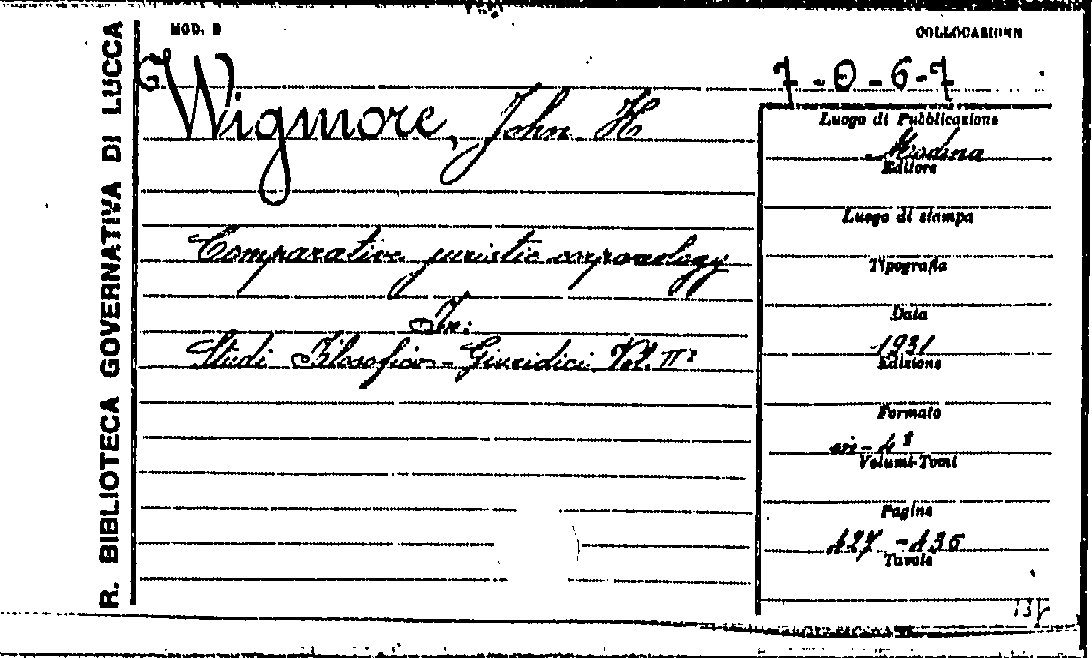 R. BIBLIOTECA GOVERNATIVA DI LUCCA
MOD. B
COLLOCAZIONE
7-0-6-7
Wigmore, John H
Comparative juristic corporology
In:
Studi Filosofico-Giuridici Vol. II°
Luogo di Pubblicazione
Modena
Editore
Luogo di stampa
Tipografia
Data
1931
Edizione
Formato
in-4°
Volumi-Tomi
Pagine
127-136
Tavole